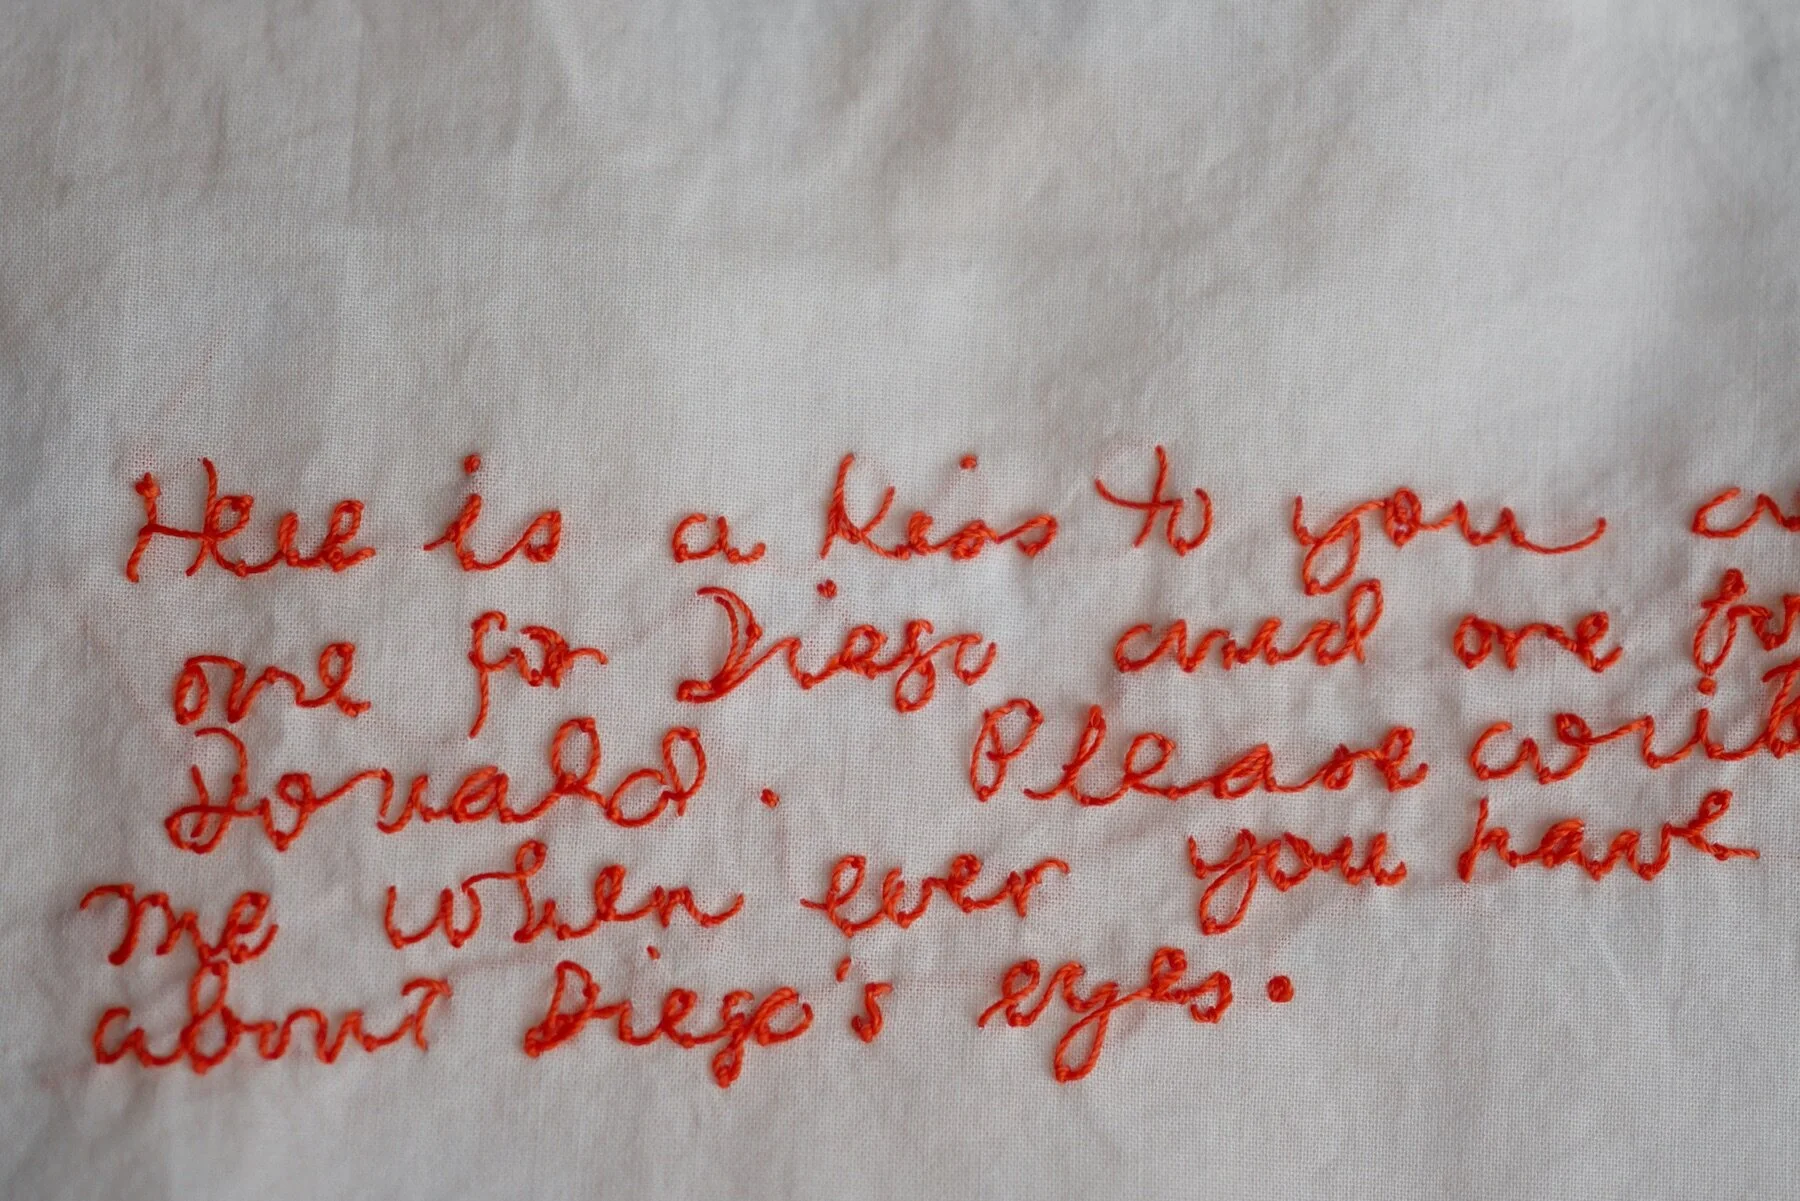 Here is a kiss to you
one for Diego and one for
Donald. Please write
me when ever you have
about Diego's eyes.